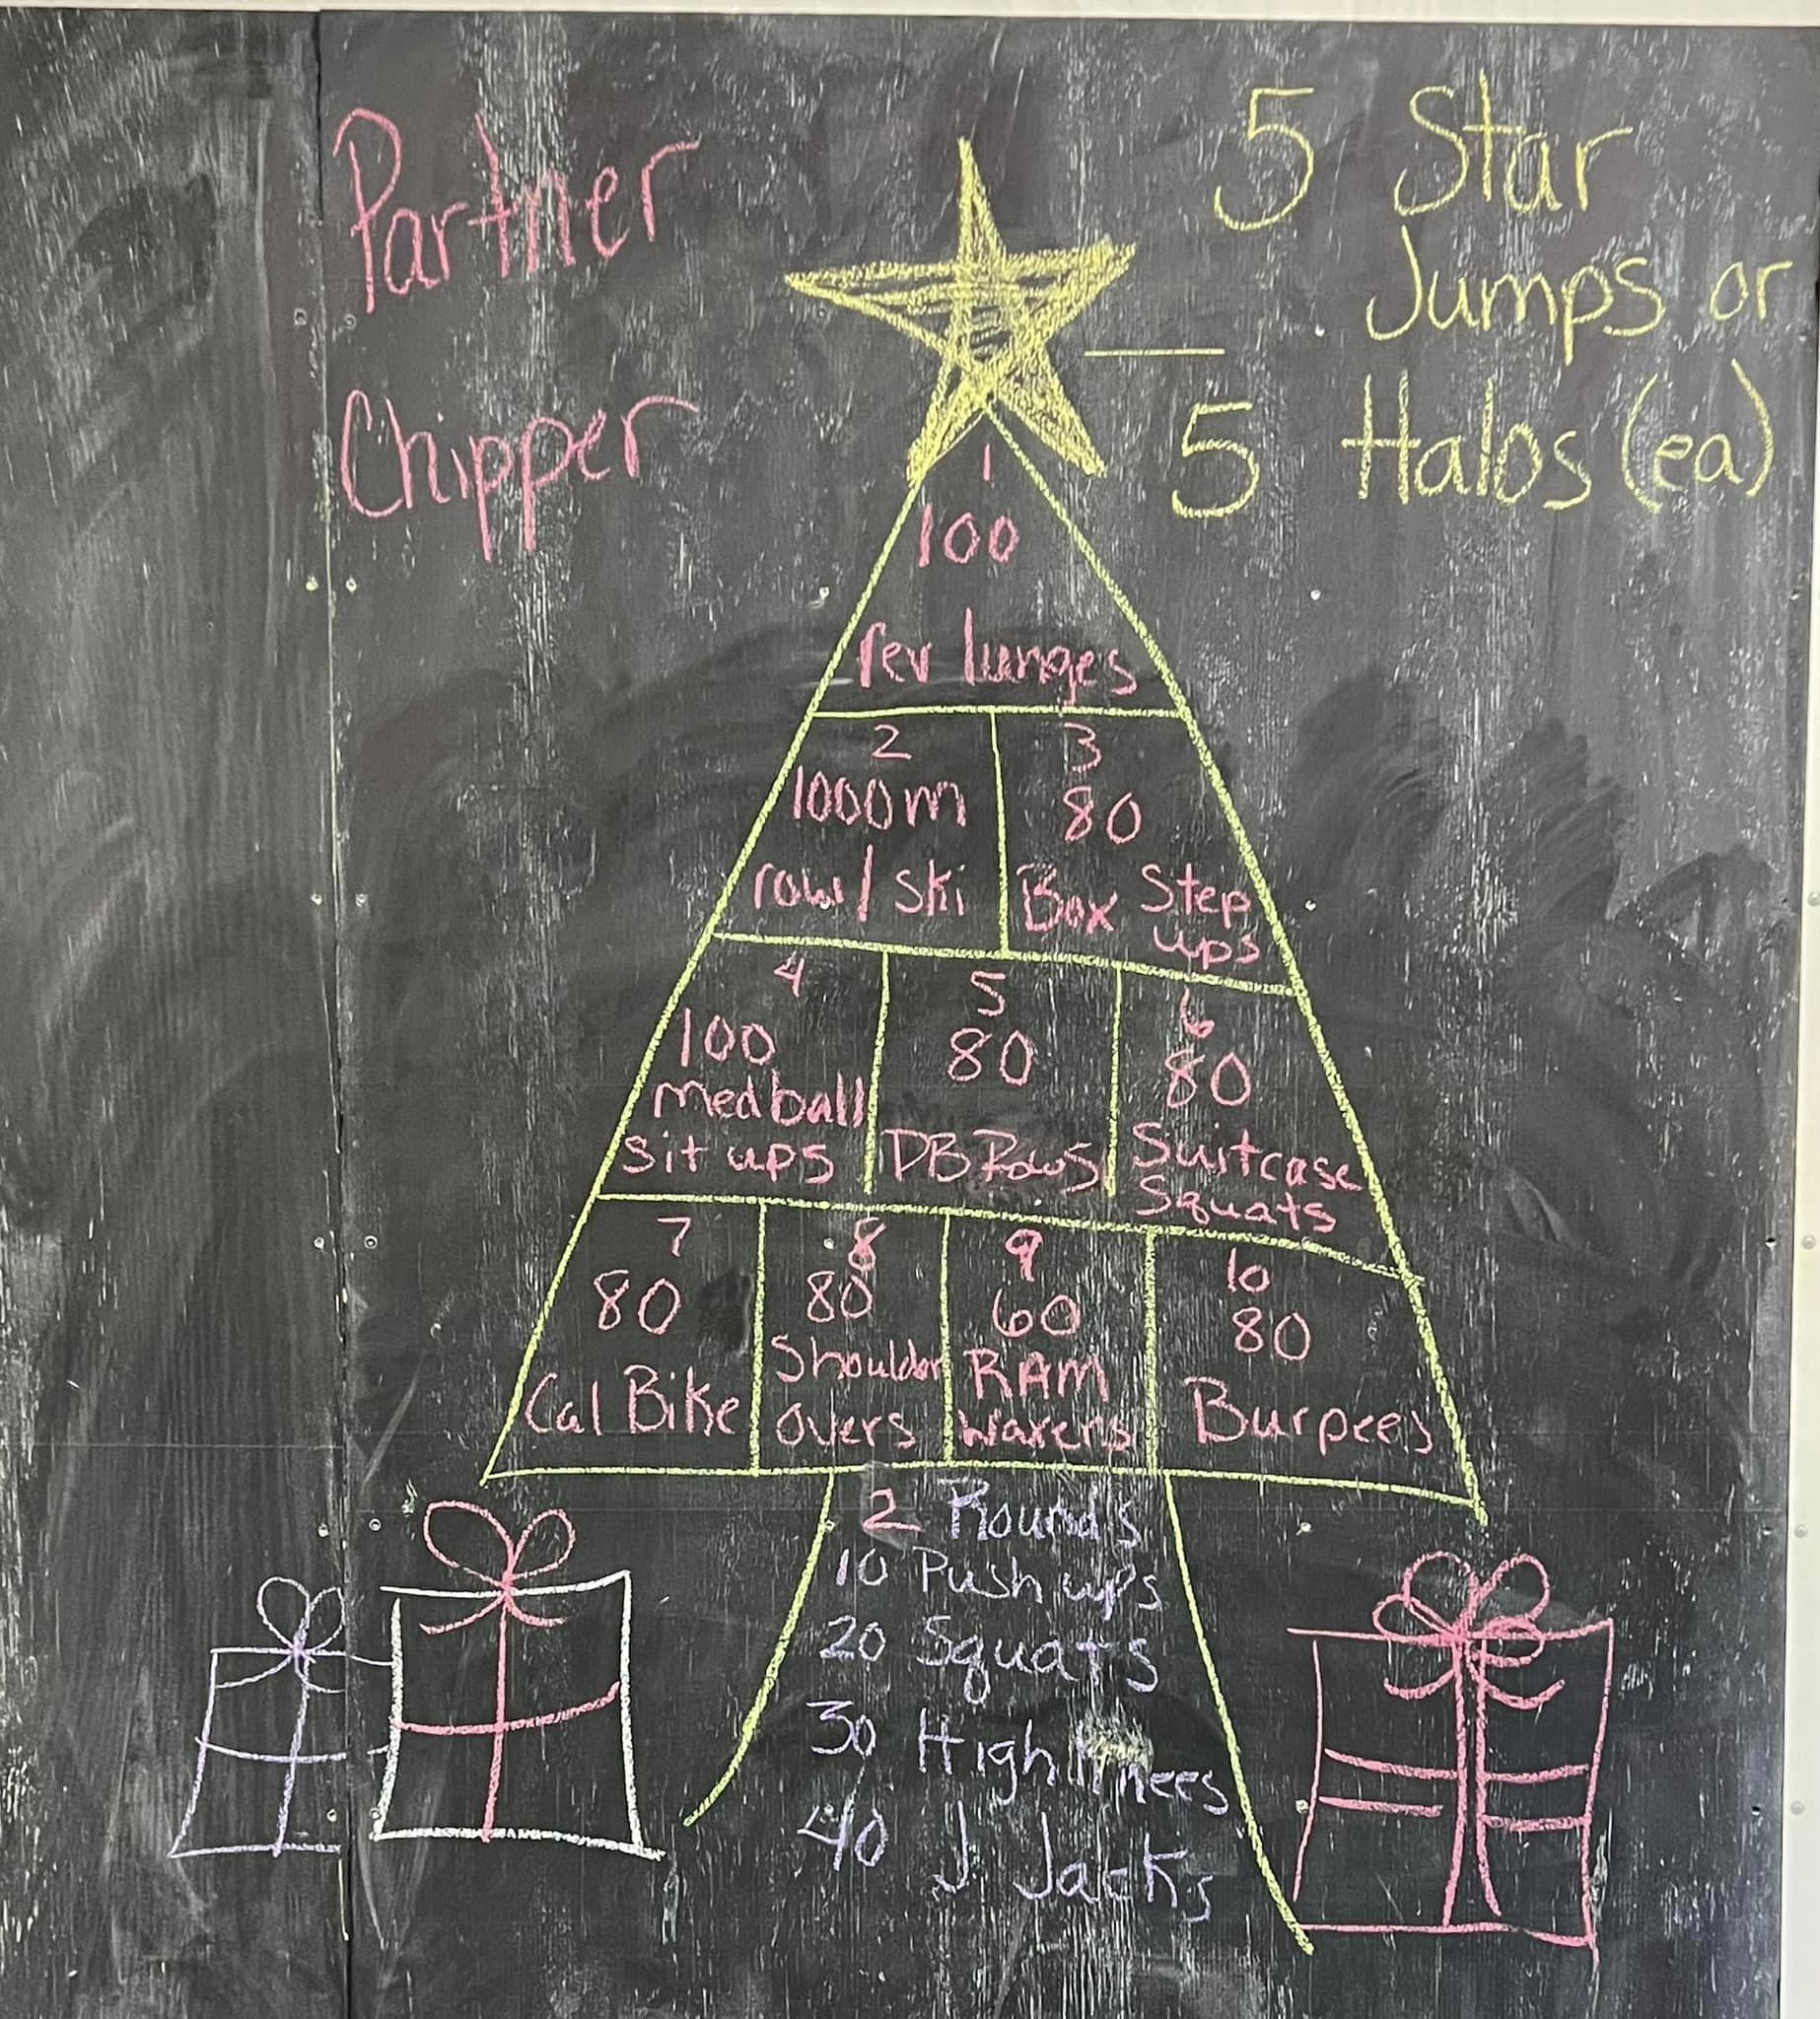 Partner
Chipper
5 Star
Jumps or
5 Halos (ea)
1
100
rev lunges
2
1000m
row/ski
3
80
Box Step
ups
4
100
medball
sit ups
5
80
DB Rows
6
80
Suitcase
Squats
7
80
Cal Bike
8
80
Shoulder
overs
9
60
RAM
waxers
10
80
Burpees
2 Rounds
10 Push ups
20 Squats
30 High Knees
40 J. Jacks